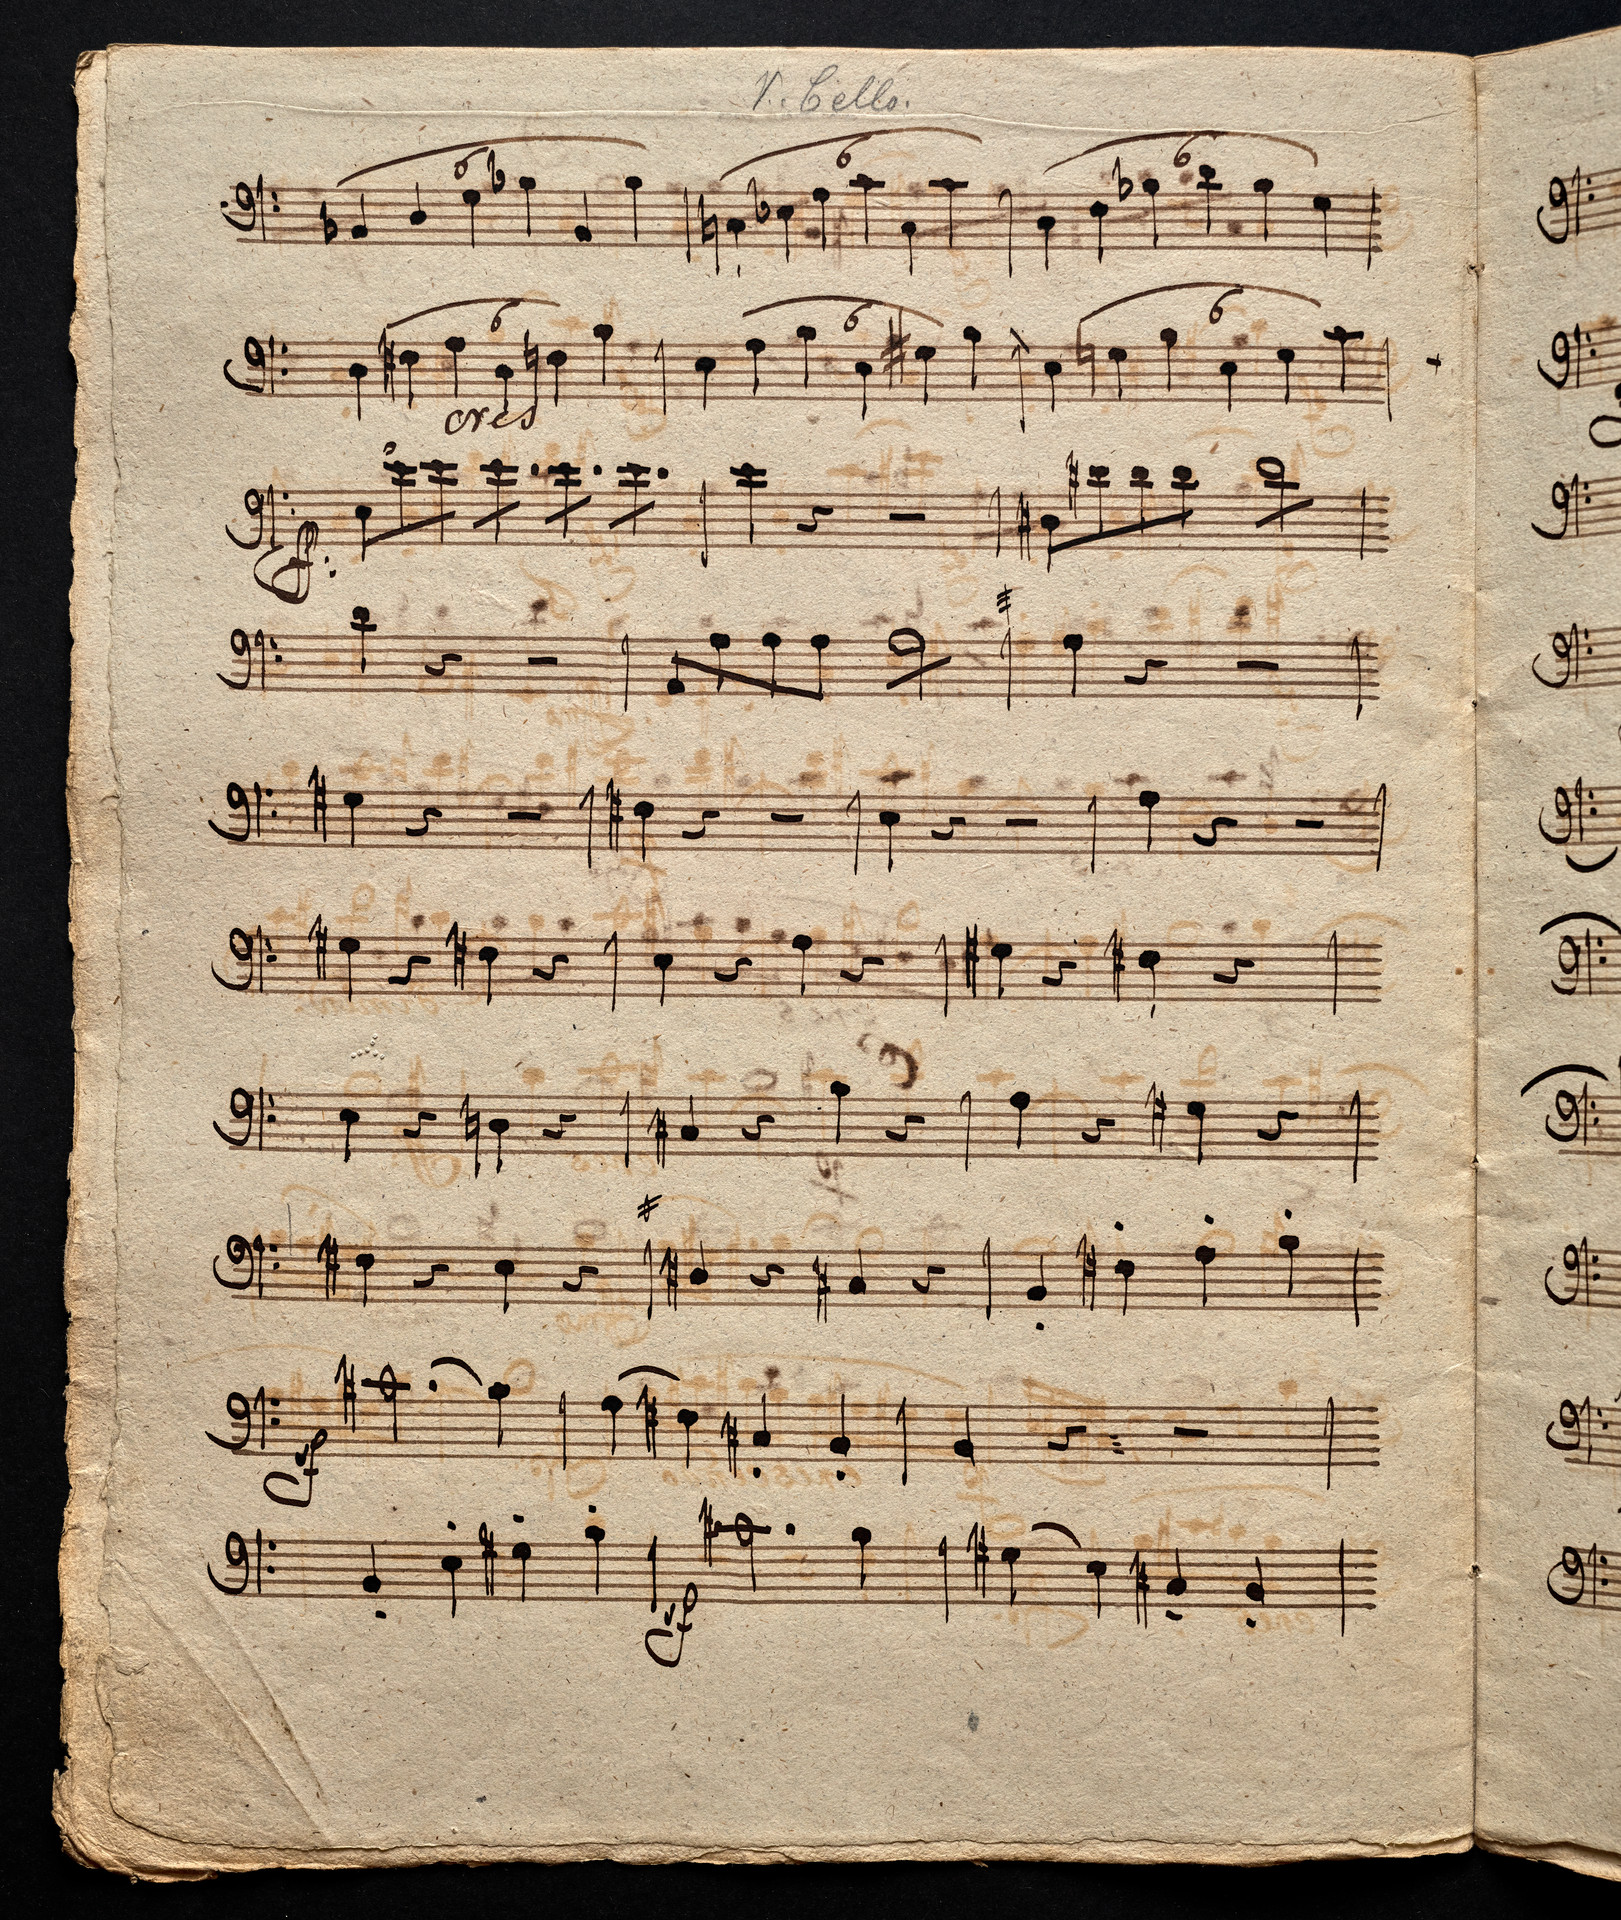 V. Cello.
6 6 6
6 6 6
cres
f:
sf
sf